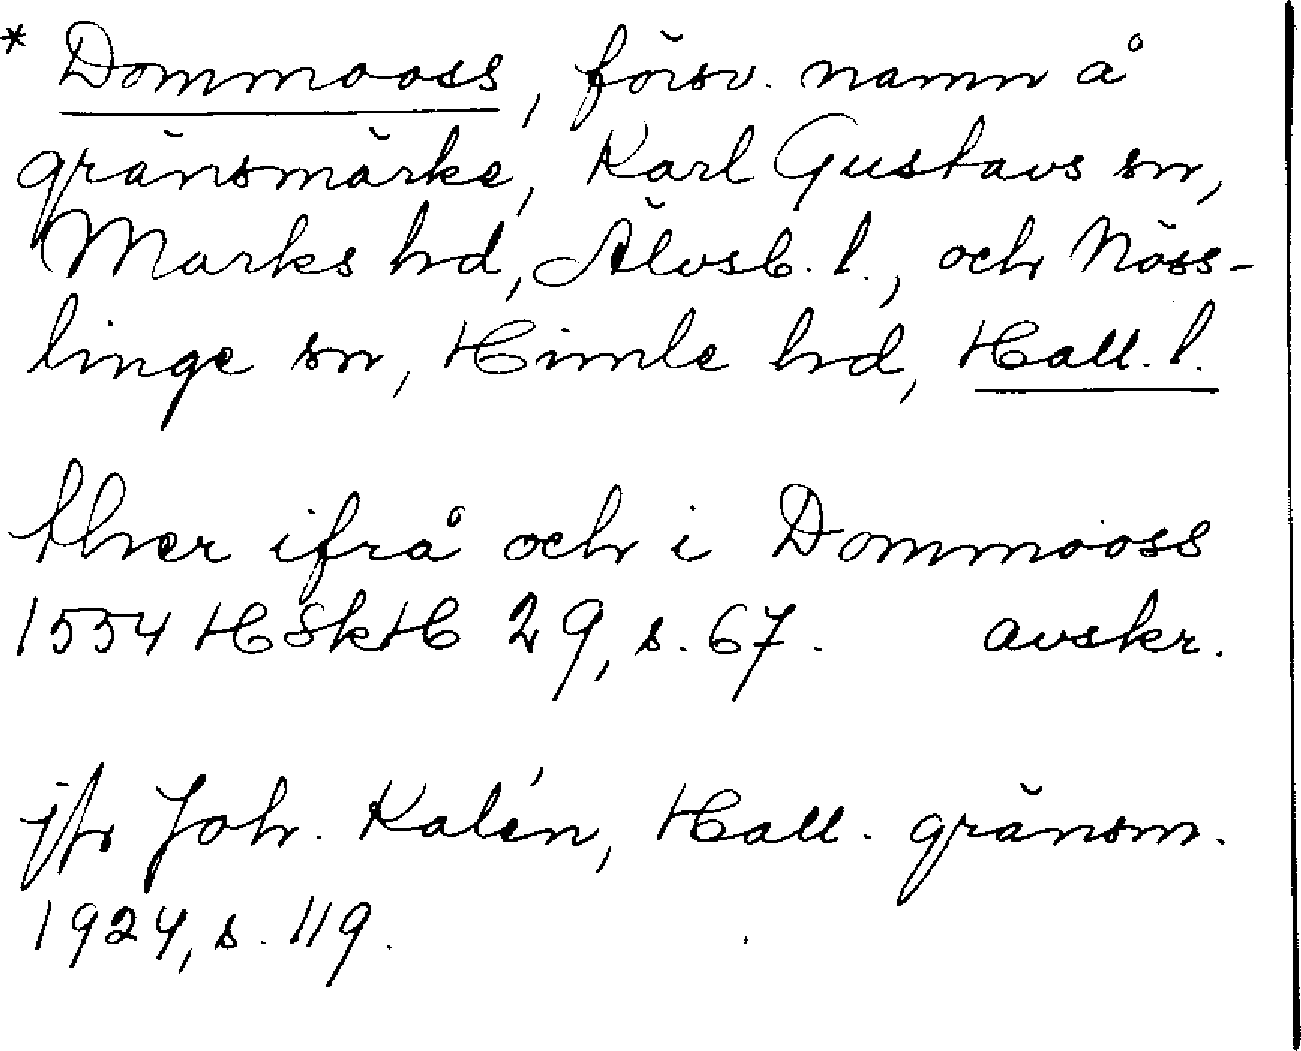 * Dommooss, försv. namn å
gränsmärke, Karl Gustavs sn,
Marks hd, Älvsb. l., och Nöss-
linge sn, Himle hd, Hall. l.
ther ifrå och i Dommooss
1554 HSkH 29, s. 67. avskr.
jfr Joh. Kalén, Hall. gränsm.
1924, s. 119.